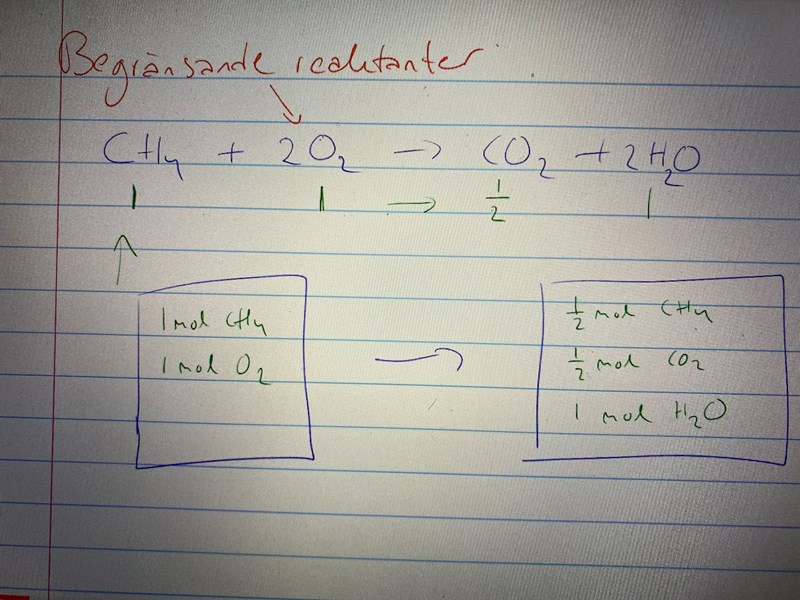 Begränsande reaktanter
CH₄ + 2O₂ → CO₂ + 2H₂O
1 1 → 1/2 1
1 mol CH₄
1 mol O₂
→
1/2 mol CH₄
1/2 mol CO₂
1 mol H₂O